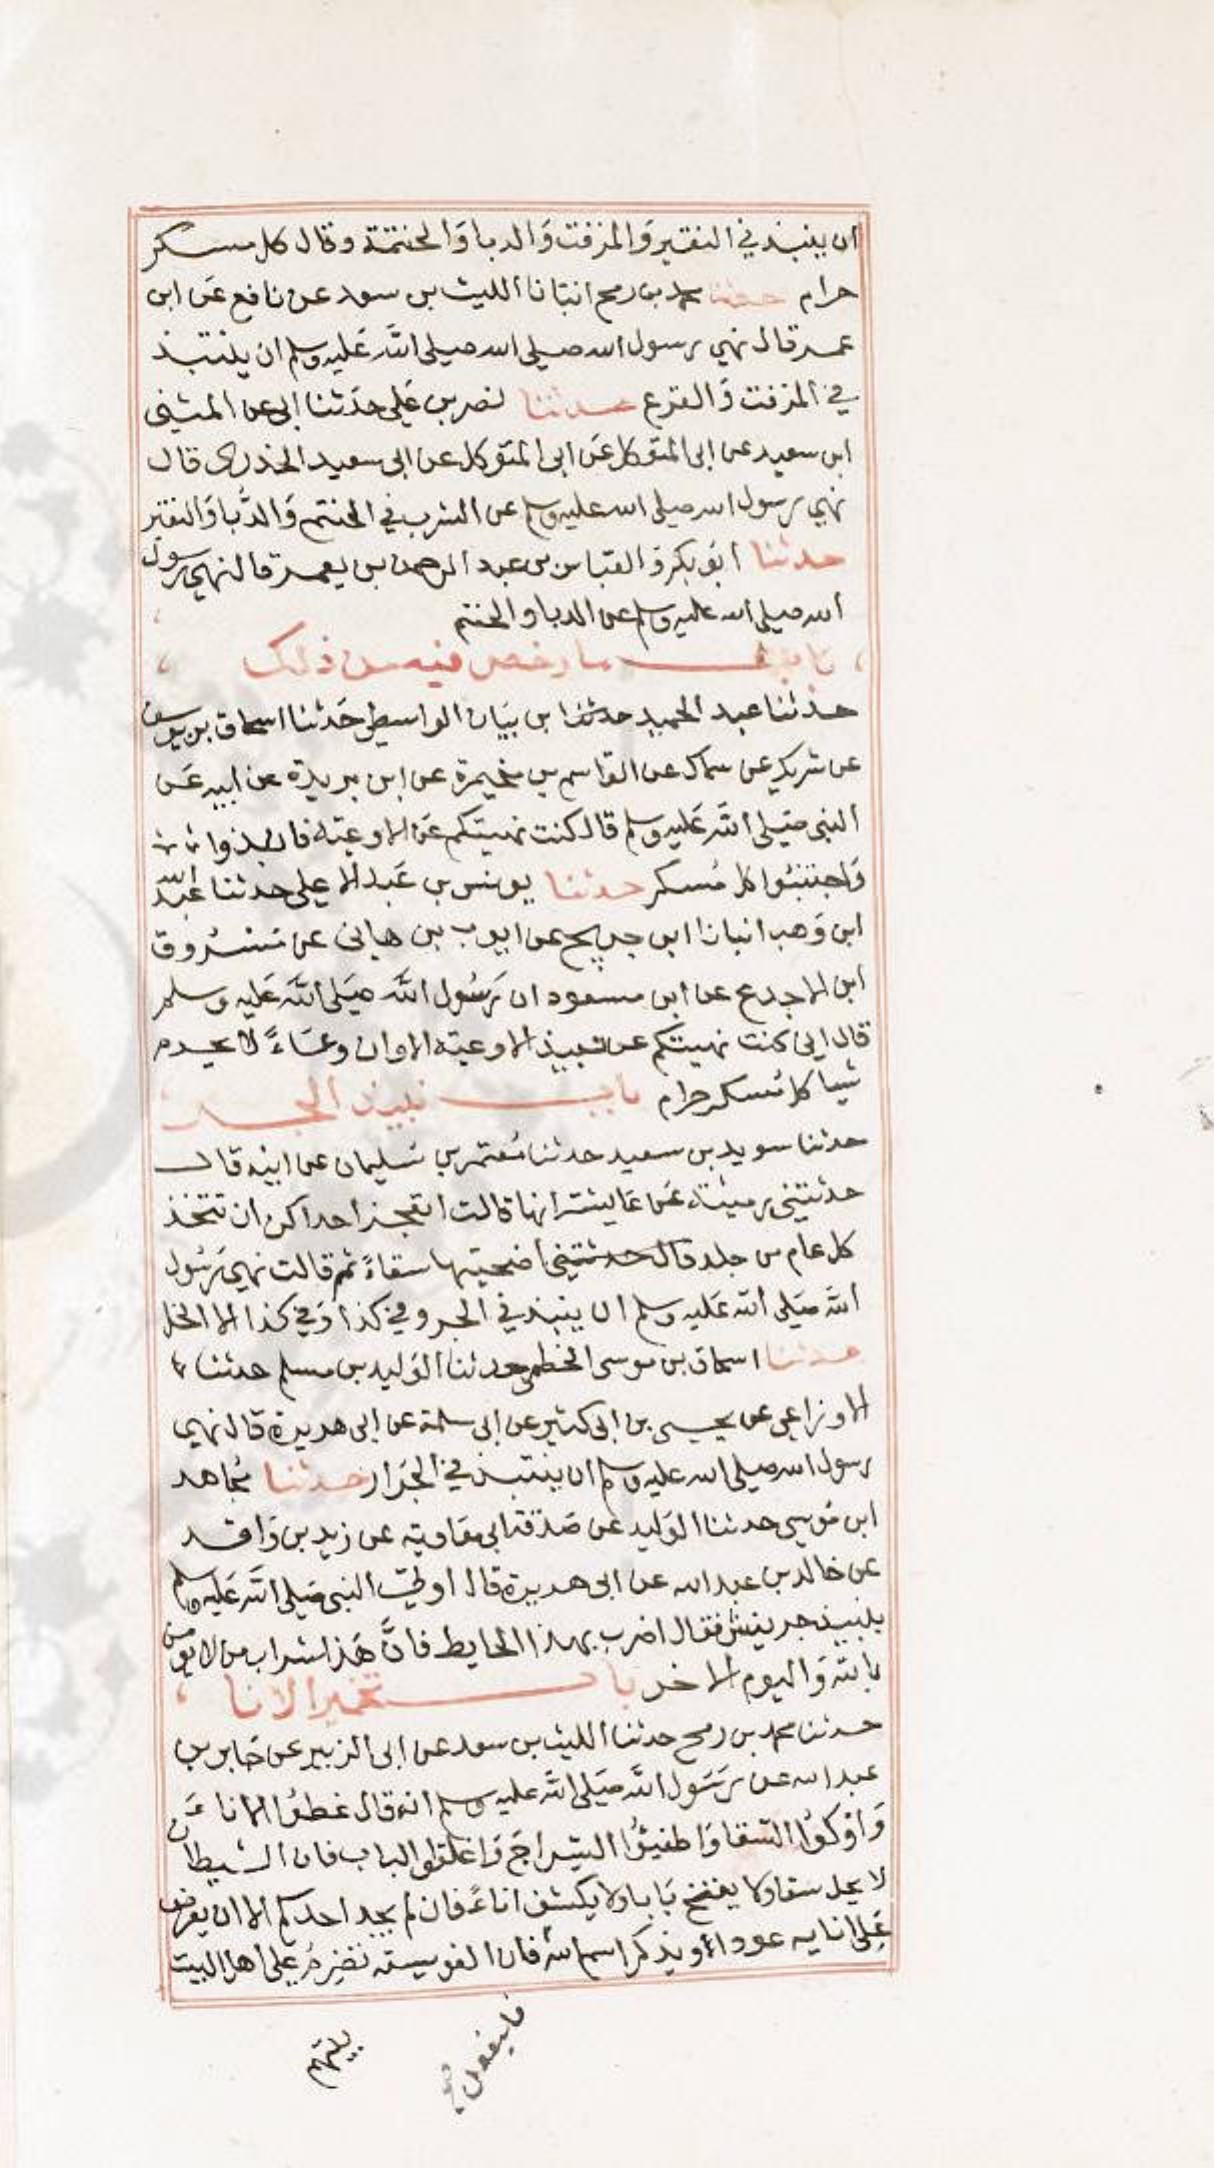 ان ينبذ في النقير والمزفت والدبا والحنتمة وقال كل مسكر
حرام حدثنا محمد بن رمح انبانا الليث بن سعد عن نافع عن ابن
عمر قال نهي رسول الله صلي الله صلي الله عليه وسلم ان ينتبذ
في المزفت والقرع حدثنا نصر بن علي حدثنا ابي عن المثني
ابن سعيد عن ابي المتوكل عن ابي المتوكل عن ابي سعيد الخدري قال
نهي رسول الله صلي الله عليه وسلم عن الشرب في الحنتم والدبا والنقير
حدثنا ابو بكر والعباس بن عبد الرحمن بن يعمر قال نهي رسول
الله صلي الله عليه وسلم عن الدبا والحنتم
باب ما رخص فيه من ذلك
حدثنا عبد الحميد حدثنا ابن بيان الواسطي حدثنا اسحاق بن يوسف
عن شريك عن سماك عن القاسم بن مخيمرة عن ابن بريدة عن ابيه عن
النبي صلي الله عليه وسلم قال كنت نهيتكم عن الاوعية فانبذوا
واجتنبوا كل مسكر حدثنا يونس بن عبد الاعلي حدثنا عبد الله
ابن وهب انبانا ابن جريج عن ايوب بن هاني عن مسروق
ابن الاجدع عن ابن مسعود ان رسول الله صلي الله عليه وسلم
قال اني كنت نهيتكم عن نبيذ الاوعية الا وان وعاءً لا يحرم
شيا كل مسكر حرام باب نبيذ الجر
حدثنا سويد بن سعيد حدثنا معتمر بن سليمان عن ابيه قال
حدثتني رميثة عن عايشة انها قالت اتعجز احداكن ان تتخذ
كل عام من جلد قال حدثتيني اضحيتها سقاءً ثم قالت نهي رسول
الله صلي الله عليه وسلم ان ينبذ في الجر وفي كذا وفي كذا الا الخل
حدثنا اسحاق بن موسي الخطمي حدثنا الوليد بن مسلم حدثنا
الاوزاعي عن يحيي بن ابي كثير عن ابي سلمة عن ابي هريرة قال نهي
رسول الله صلي الله عليه وسلم ان ينتبذ في الجرار حدثنا مجاهد
ابن موسي حدثنا الوليد عن صدقة ابي معاوية عن زيد بن واقد
عن خالد بن عبد الله عن ابي هريرة قال اوتي النبي صلي الله عليه وسلم
بنبيذ جر ينش فقال اضرب بهذا الحايط فانَّ هذا شراب من لا يومن
بالله واليوم الاخر باب تخمير الانا
حدثنا محمد بن رمح حدثنا الليث بن سعد عن ابي الزبير عن جابر بن
عبد الله عن رسول الله صلي الله عليه وسلم انه قال غطوا الانا
واوكوا السقا واطفيوا السراج واغلقوا الباب فان الشيطان
لا يحل سقا ولا يفتح بابا ولا يكشف اناءً فان لم يجد احدكم الا ان يعرض
علي انايه عودا او يذكر اسم الله فان الفويسقه تضرم علي اهل البيت
بيتهم